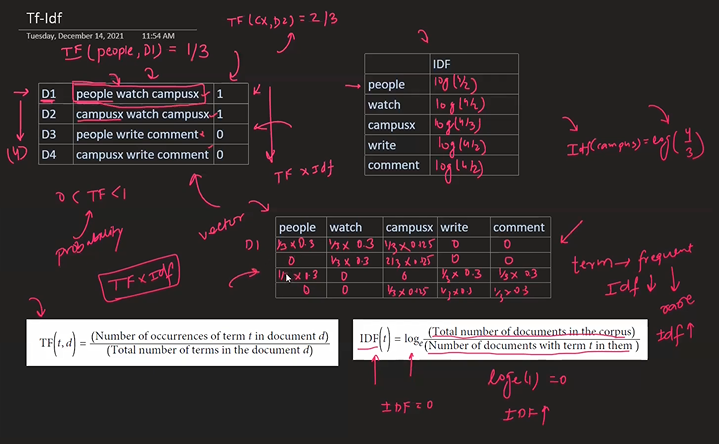 Tf-Idf
Tuesday, December 14, 2021 11:54 AM
TF(CX,D2) = 2/3
TF(people, D1) = 1/3
D1 people watch campusx 1
D2 campusx watch campusx 1
D3 people write comment 0
D4 campusx write comment 0
(4)
IDF
people log(4/2)
watch log(4/2)
campusx log(4/3)
write log(4/2)
comment log(4/2)
Idf(campus) = log(4/3)
TF x Idf
0 < TF < 1
probability
vector
TF x Idf
people watch campusx write comment
D1 1/3 x 0.3 1/3 x 0.3 1/3 x 0.125 0 0
0 1/3 x 0.3 2/3 x 0.125 0 0
1/3 x 0.3 0 0 1/3 x 0.3 1/3 x 0.3
0 0 1/3 x 0.125 1/3 x 0.3 1/3 x 0.3
term → frequent
Idf ↓
rare
Idf ↑
TF(t, d) = (Number of occurrences of term t in document d) / (Total number of terms in the document d)
IDF(t) = log e (Total number of documents in the corpus) / (Number of documents with term t in them)
loge(1) = 0
IDF = 0
IDF ↑